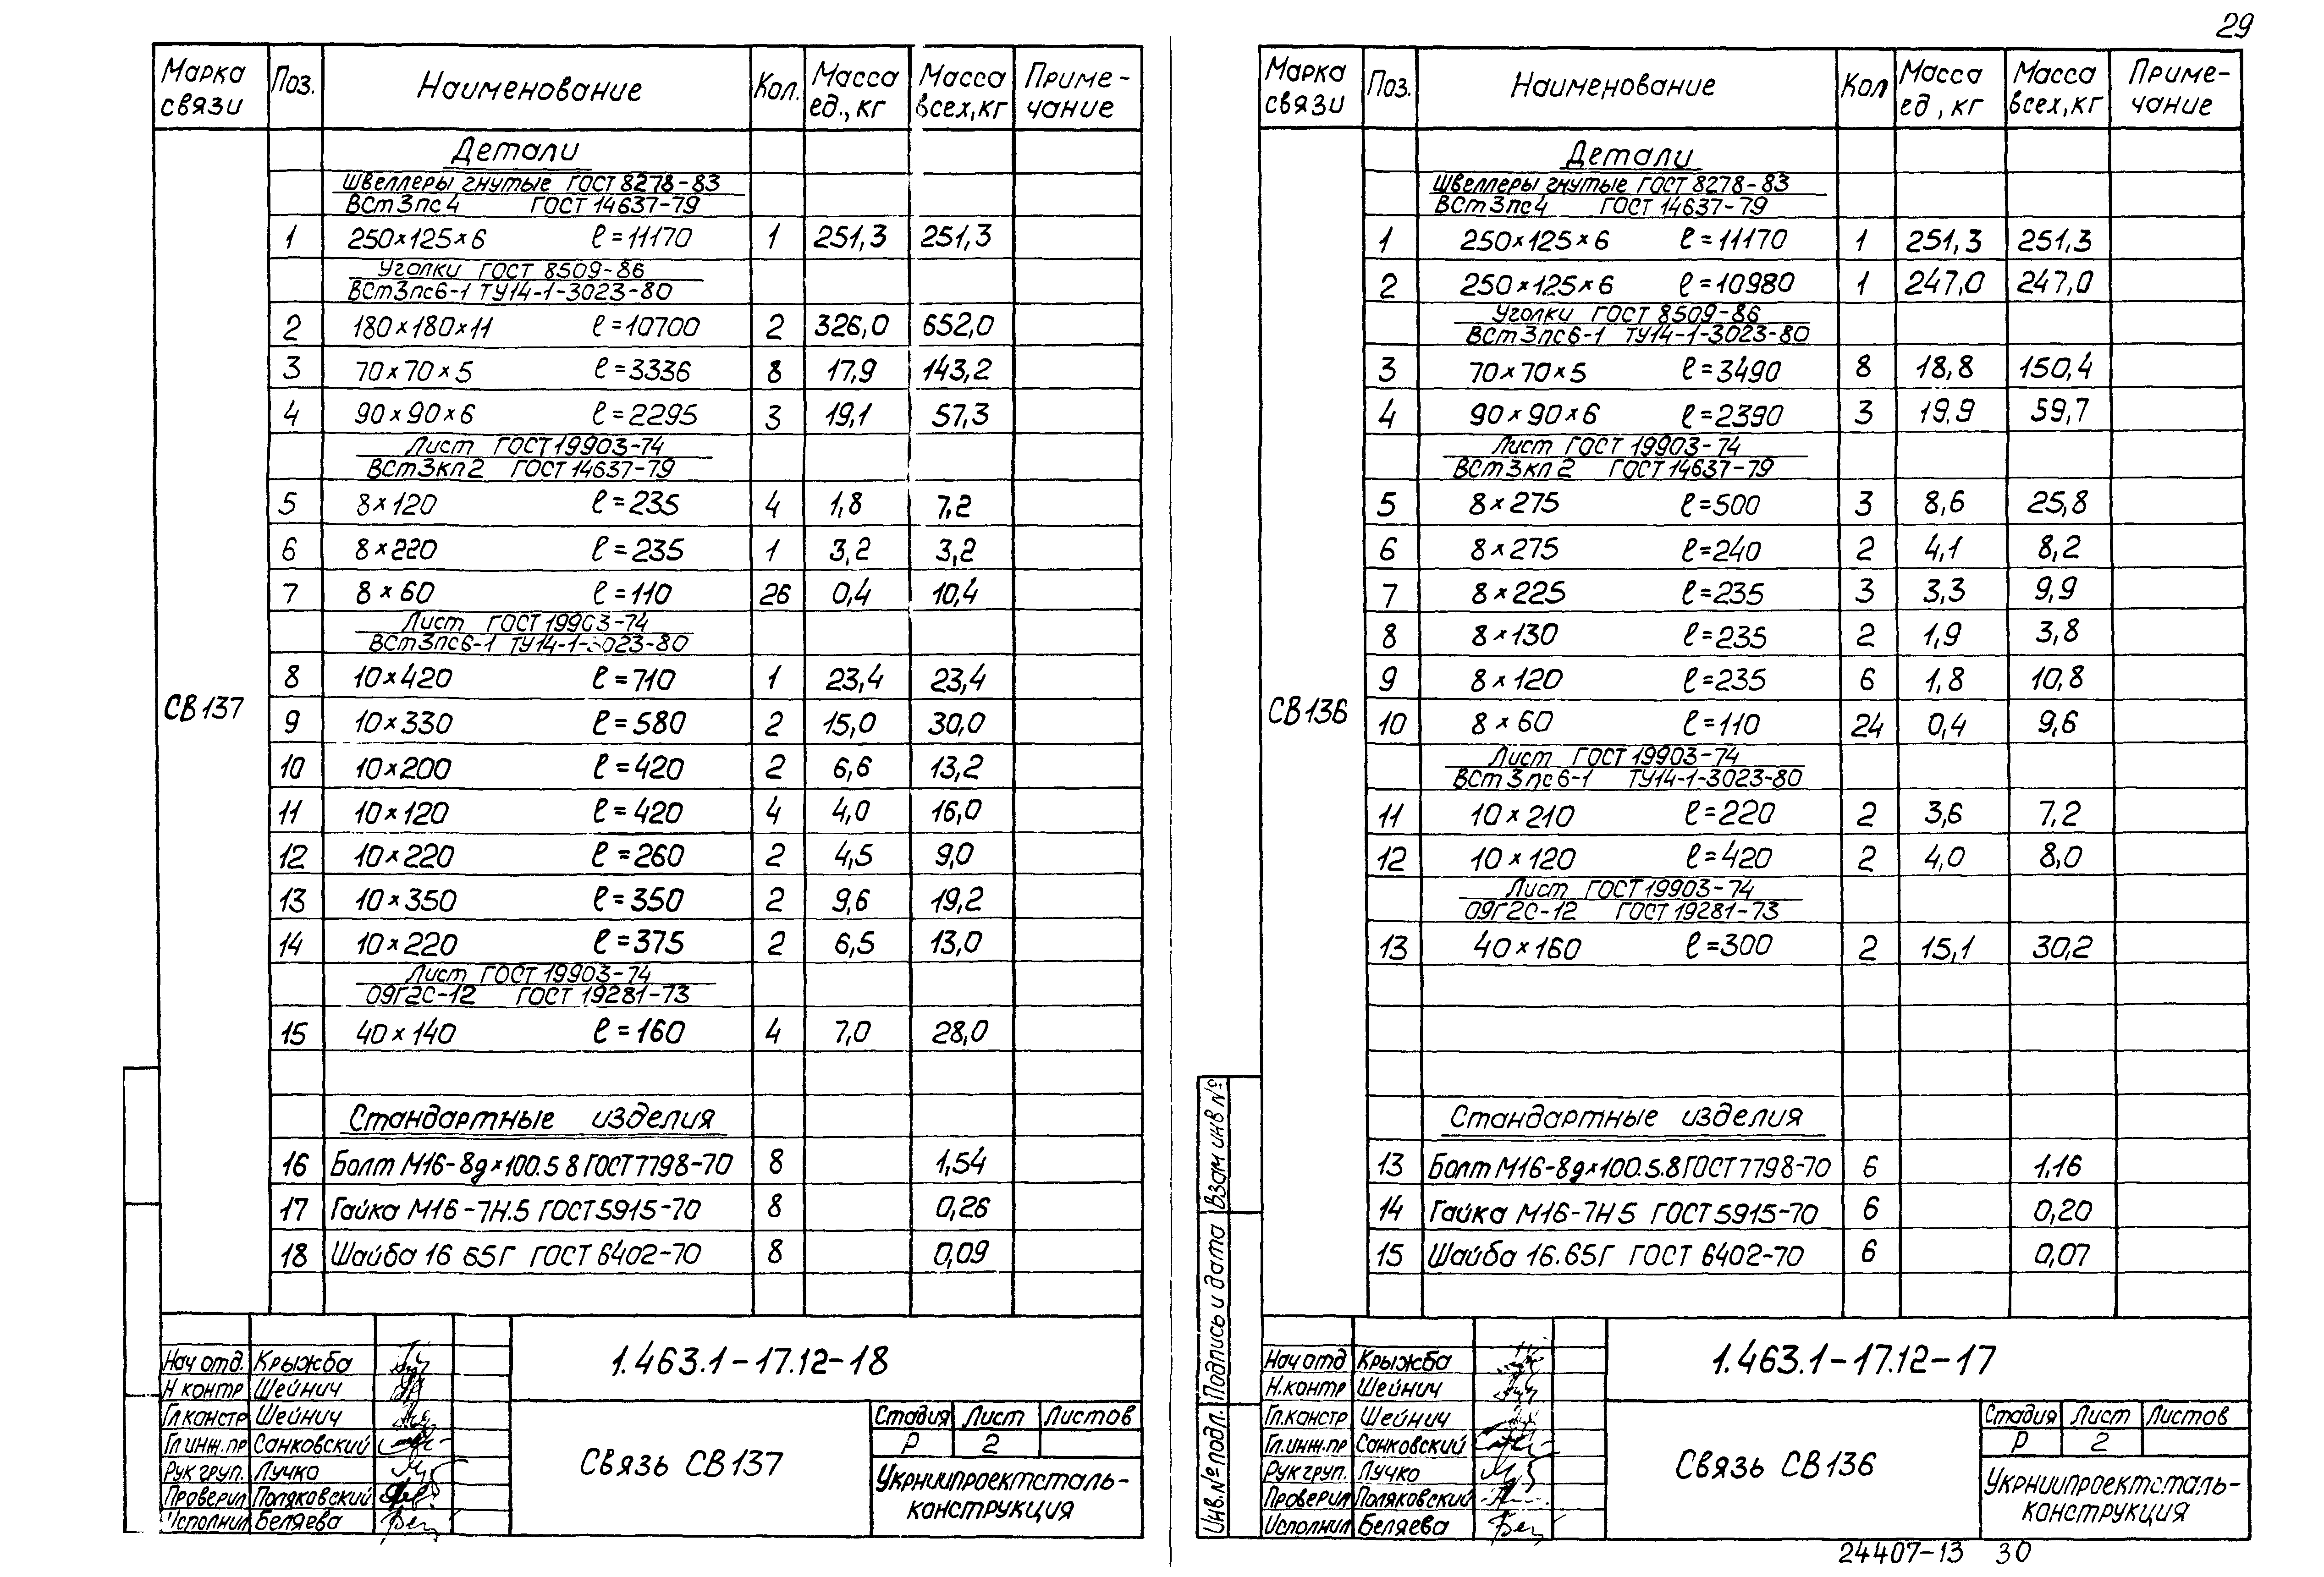 29
Марка связи Поз. Наименование Кол. Масса ед., кг Масса всех, кг Приме-чание
Детали
Швеллеры гнутые ГОСТ 8278-83
ВСт3пс4 ГОСТ 14637-79
1 250×125×6 ℓ=11170 1 251,3 251,3
Уголки ГОСТ 8509-86
ВСт3пс6-1 ТУ14-1-3023-80
2 180×180×11 ℓ=10700 2 326,0 652,0
3 70×70×5 ℓ=3336 8 17,9 143,2
4 90×90×6 ℓ=2295 3 19,1 57,3
Лист ГОСТ 19903-74
ВСт3кп2 ГОСТ 14637-79
5 8×120 ℓ=235 4 1,8 7,2
6 8×220 ℓ=235 1 3,2 3,2
7 8×60 ℓ=110 26 0,4 10,4
Лист ГОСТ 19903-74
ВСт3пс6-1 ТУ14-1-3023-80
8 10×420 ℓ=710 1 23,4 23,4
СВ137
9 10×330 ℓ=580 2 15,0 30,0
10 10×200 ℓ=420 2 6,6 13,2
11 10×120 ℓ=420 4 4,0 16,0
12 10×220 ℓ=260 2 4,5 9,0
13 10×350 ℓ=350 2 9,6 19,2
14 10×220 ℓ=375 2 6,5 13,0
Лист ГОСТ 19903-74
09Г2С-12 ГОСТ 19281-73
15 40×140 ℓ=160 4 7,0 28,0
Стандартные изделия
16 Болт М16-8g×100.5 8 ГОСТ 7798-70 8 1,54
17 Гайка М16-7Н.5 ГОСТ 5915-70 8 0,26
18 Шайба 16 65Г ГОСТ 6402-70 8 0,09
Нач отд. Крыжба
Н контр Шейнич
Гл констр Шейнич
Гл инж.пр Санковский
Рук груп. Лучко
Проверил Поляковский
Исполнил Беляева
1.463.1-17.12-18
Связь СВ137
Стадия Лист Листов
Р 2
Укрниипроектсталь-
конструкция
Марка связи Поз. Наименование Кол Масса ед, кг Масса всех, кг Приме-чание
Детали
Швеллеры гнутые ГОСТ 8278-83
ВСт3пс4 ГОСТ 14637-79
1 250×125×6 ℓ=11170 1 251,3 251,3
2 250×125×6 ℓ=10980 1 247,0 247,0
Уголки ГОСТ 8509-86
ВСт3пс6-1 ТУ14-1-3023-80
3 70×70×5 ℓ=3490 8 18,8 150,4
4 90×90×6 ℓ=2390 3 19,9 59,7
Лист ГОСТ 19903-74
ВСт3кп2 ГОСТ 14637-79
5 8×275 ℓ=500 3 8,6 25,8
6 8×275 ℓ=240 2 4,1 8,2
7 8×225 ℓ=235 3 3,3 9,9
8 8×130 ℓ=235 2 1,9 3,8
9 8×120 ℓ=235 6 1,8 10,8
СВ136
10 8×60 ℓ=110 24 0,4 9,6
Лист ГОСТ 19903-74
ВСт3пс6-1 ТУ14-1-3023-80
11 10×210 ℓ=220 2 3,6 7,2
12 10×120 ℓ=420 2 4,0 8,0
Лист ГОСТ 19903-74
09Г2С-12 ГОСТ 19281-73
13 40×160 ℓ=300 2 15,1 30,2
Стандартные изделия
13 Болт М16-8g×100.5.8 ГОСТ 7798-70 6 1,16
14 Гайка М16-7Н 5 ГОСТ 5915-70 6 0,20
15 Шайба 16.65Г ГОСТ 6402-70 6 0,07
Инв.№ подл. Подпись и дата Взам инв №
Нач отд Крыжба
Н.контр Шейнич
Гл.констр Шейнич
Гл.инж.пр Санковский
Рук груп. Лучко
Проверил Поляковский
Исполнил Беляева
1.463.1-17.12-17
Связь СВ136
Стадия Лист Листов
Р 2
Укрниипроектсталь-
конструкция
24407-13 30